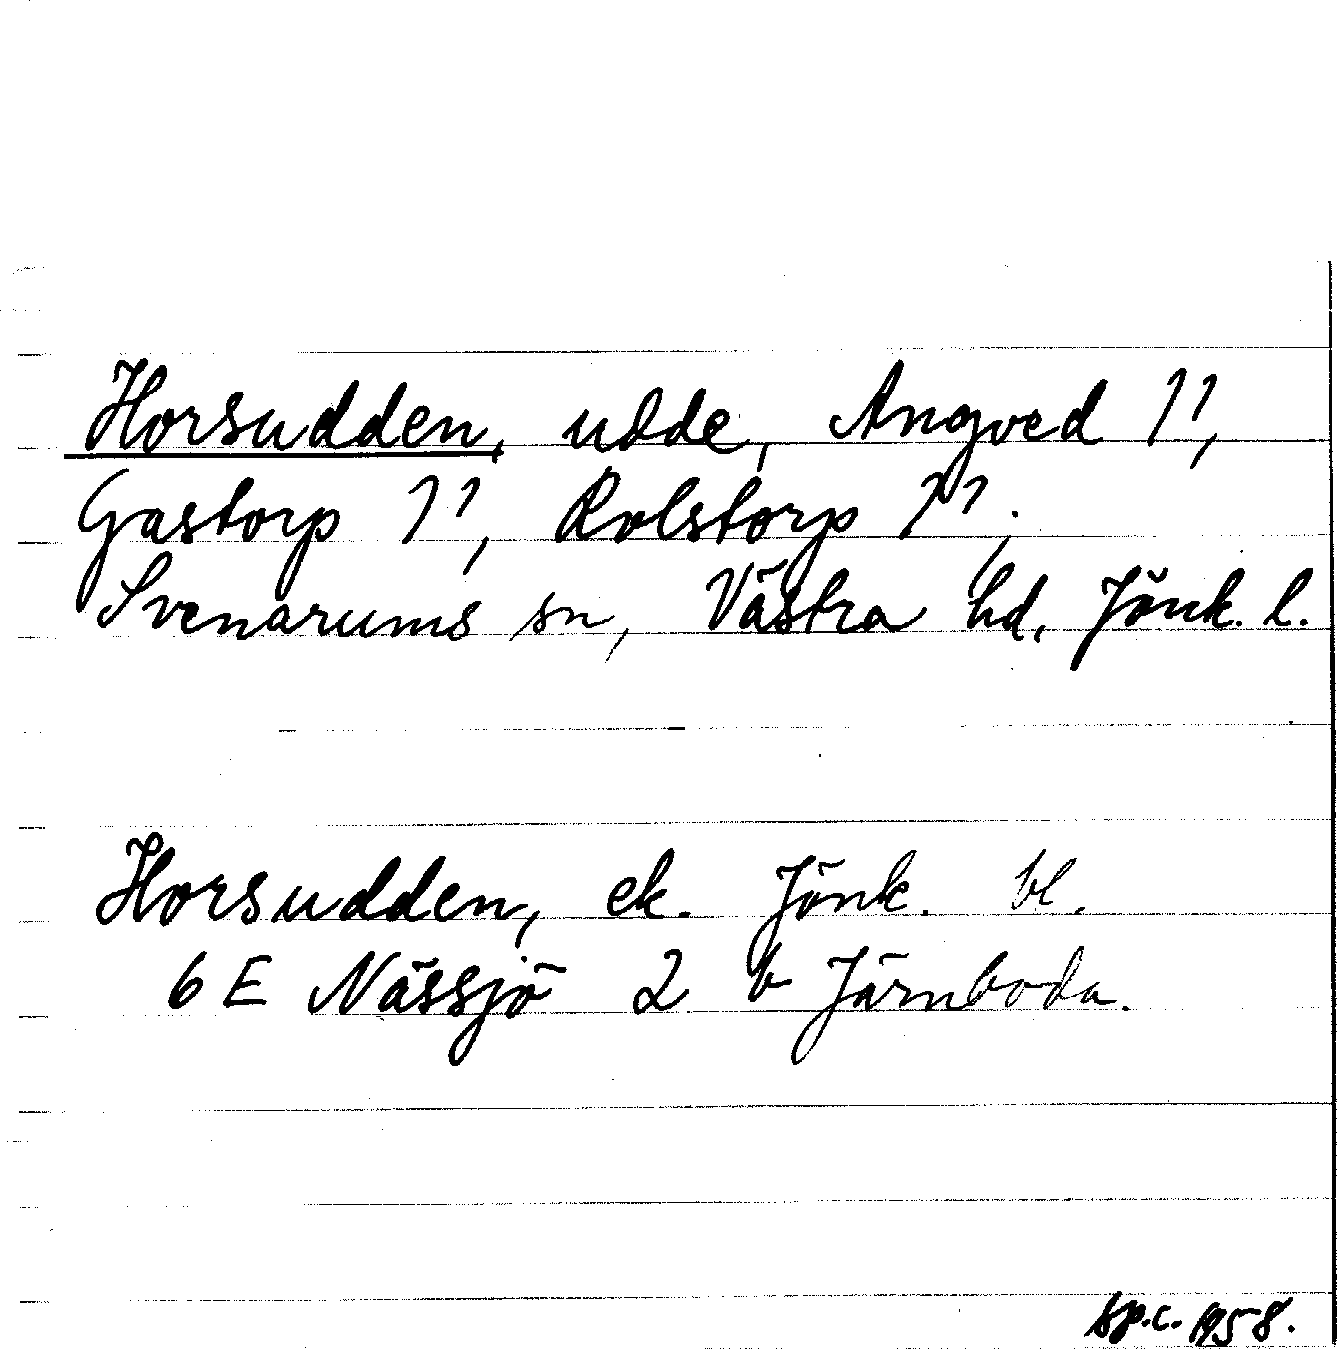 Horsudden, udde, Angved 11,
Gastorp 11, Rolstorp 11.
Svenarums sn, Västra hd, Jönk. l.
Horsudden, ek. Jönk. bl.
6 E Nässjö 2 b Järnboda.
Sp.c. 1958.